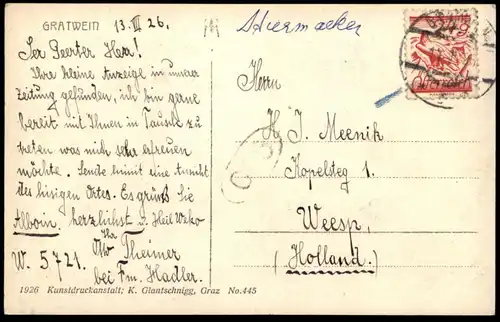 GRATWEIN 13. III 26.
Steiermarken
Ser Geerter Herr!
Ihre kleine Anzeige in unserer
Zeitung gefunden, ich bin gerne
bereit mit Ihnen in Tausch zu
treten was mich sehr erfreuen
möchte. Sende himit eine Ansicht
des hisigen Ortes. Es grüßt Sie
Alboin. herzlichst u Heil
Ihr
Theimer
W. 5721. bei Fm. Hadler.
Herrn
H J. Meenik
Kopelsteg 1.
Weesp,
(Holland.)
1926 Kunstdruckanstalt; K. Glantschnigg, Graz No.445